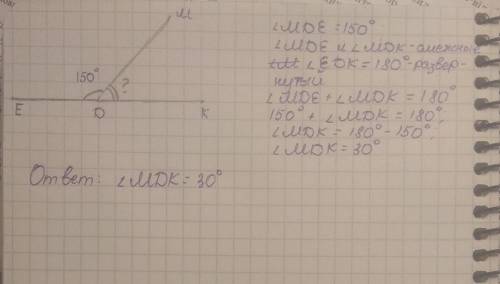 M
150°
?
E
D
K
∠MDE = 150°
∠MDE и ∠MDK - смежные
∠EDK = 180° - развер-
нутый
∠MDE + ∠MDK = 180°
150° + ∠MDK = 180°,
∠MDK = 180° - 150°,
∠MDK = 30°
Ответ: ∠MDK = 30°